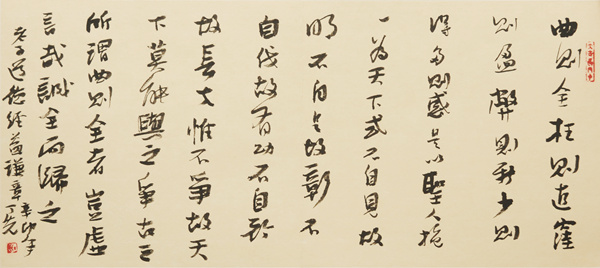 曲则全枉则直窪
则盈弊则新少则
得多则惑是以聖人抱
一為天下式不自見故
明不自是故彰不
自伐故有功不自矜
故長夫惟不爭故天
下莫能與之爭古之
所謂曲则全者豈虚
言哉誠全而歸之
老子道德經益謙章
辛卯年